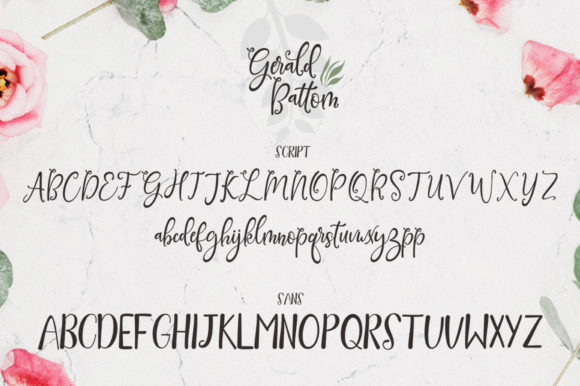 Gerald
Battom
SCRIPT
ABCDEFGHIJKLMNOPQRSTUVWXYZ
abcdefghijklmnopqrstuvwxyzpp
SANS
ABCDEFGHIJKLMNOPQRSTUVWXYZ